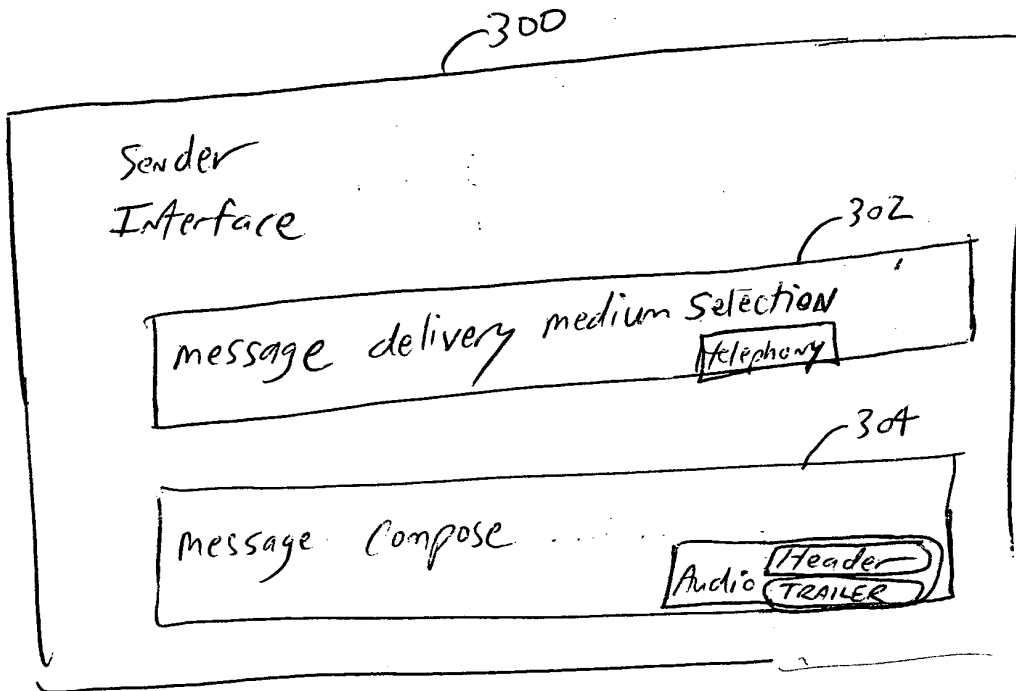 300
Sender
Interface
302
message delivery medium Selection
telephony
304
message compose .........
Audio Header
TRAILER